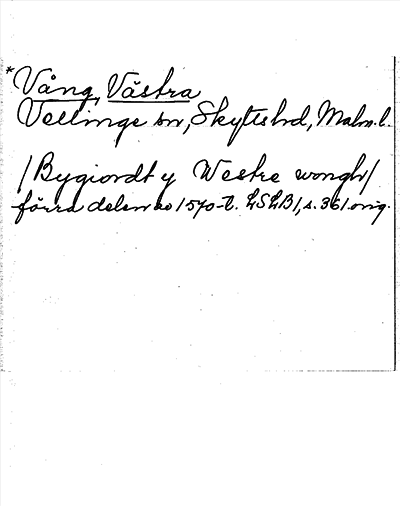 *Vång, Västra
Vellinge sn, Skytts hd, Malm. l.
/Bygiordt y Westre wongh/
förra delen av 1570-t. LSLB1, s. 361 orig.